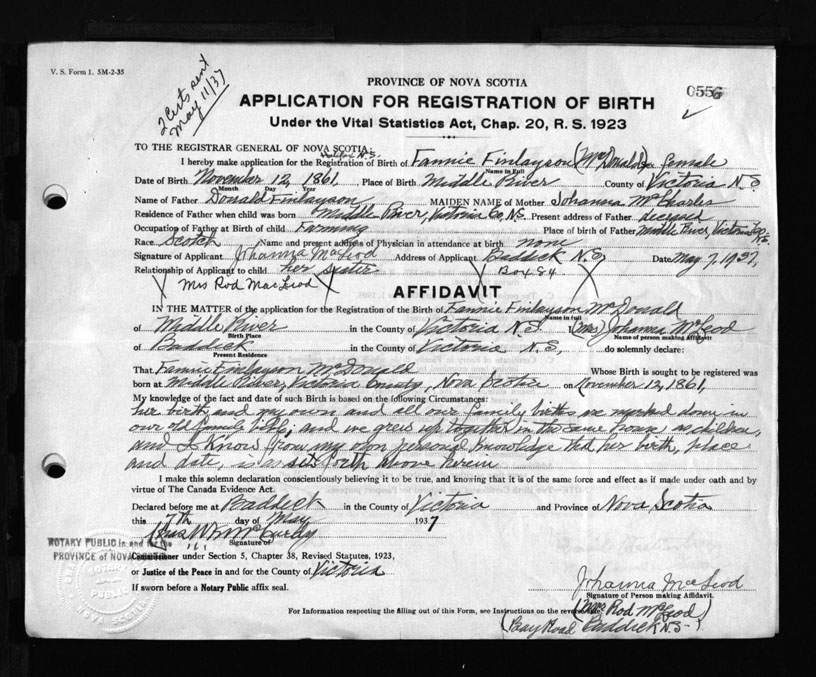 V. S. Form 1. 5M-2-35
2 Certs sent
May 11/37
PROVINCE OF NOVA SCOTIA
0556
APPLICATION FOR REGISTRATION OF BIRTH
Under the Vital Statistics Act, Chap. 20, R. S. 1923
TO THE REGISTRAR GENERAL OF NOVA SCOTIA:
Halifax N.S.
I hereby make application for the Registration of Birth of Fannie Finlayson (McDonald) a female
Name in Full
Date of Birth November 12, 1861, Place of Birth Middle River County of Victoria N.S
Month Day Year
Name of Father Donald Finlayson MAIDEN NAME of Mother Johanna McCharles
Residence of Father when child was born Middle River, Victoria Co, N.S. Present address of Father deceased
Occupation of Father at Birth of child Farming Place of birth of Father Middle River, Victoria Co, N.S.
Race Scotch Name and present address of Physician in attendance at birth none
Signature of Applicant Johanna MacLeod Address of Applicant Baddeck N.S, Date May 7, 1937,
Relationship of Applicant to child her sister Box 84
Mrs Rod MacLeod
AFFIDAVIT
IN THE MATTER of the application for the Registration of the Birth of Fannie Finlayson McDonald
Name in full
of Middle River in the County of Victoria N.S. I (Mrs) Johanna McLeod
Birth Place Name of person making Affidavit
of Baddeck in the County of Victoria N.S, do solemnly declare:
Present Residence
That Fannie Finlayson McDonald Whose Birth is sought to be registered was
born at Middle River, Victoria County, Nova Scotia on November 12, 1861,
My knowledge of the fact and date of such Birth is based on the following Circumstances:
her birth and my own and all our family births are marked down in
our old family bible; and we grew up together in the same house as children,
and I know from my own personal knowledge that her birth, place
and date, is as sets forth above herein
I make this solemn declaration conscientiously believing it to be true, and knowing that it is of the same force and effect as if made under oath and by
virtue of The Canada Evidence Act.
Declared before me at Baddeck in the County of Victoria and Province of Nova Scotia
this 7th day of May 1937
Signature of
NOTARY PUBLIC in and for the
PROVINCE of NOVA
Commissioner under Section 5, Chapter 38, Revised Statutes, 1923,
or Justice of the Peace in and for the County of Victoria
If sworn before a Notary Public affix seal.
NOTARY PUBLIC
NOVA SCOTIA
Johanna MacLeod
Signature of Person making Affidavit.
For Information respecting the filling out of this Form, see Instructions on the reverse
(Mrs Rod McLeod)
(Bay Road Baddeck N.S.)